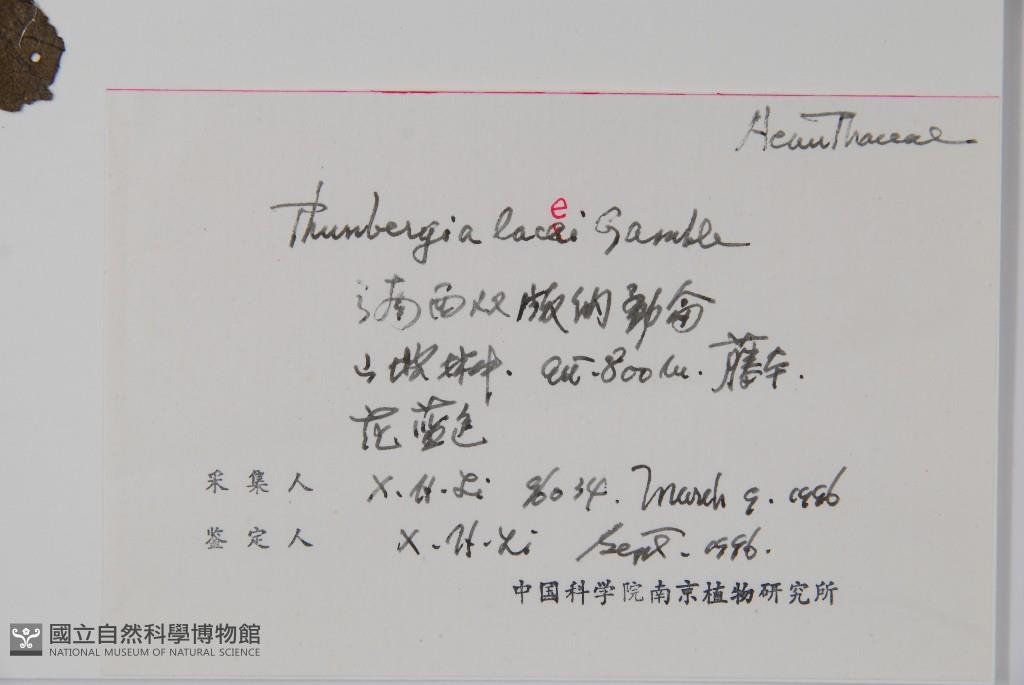 Acanthaceae
e
Thunbergia lacei Gamble
云南西双版纳勐仑
山坡林中. alt. 800m. 藤本.
花蓝色
采集人 X. H. Li 96034. March 9. 1996
鉴定人 X. H. Li Sept. 1996.
中国科学院南京植物研究所
國立自然科學博物館
NATIONAL MUSEUM OF NATURAL SCIENCE